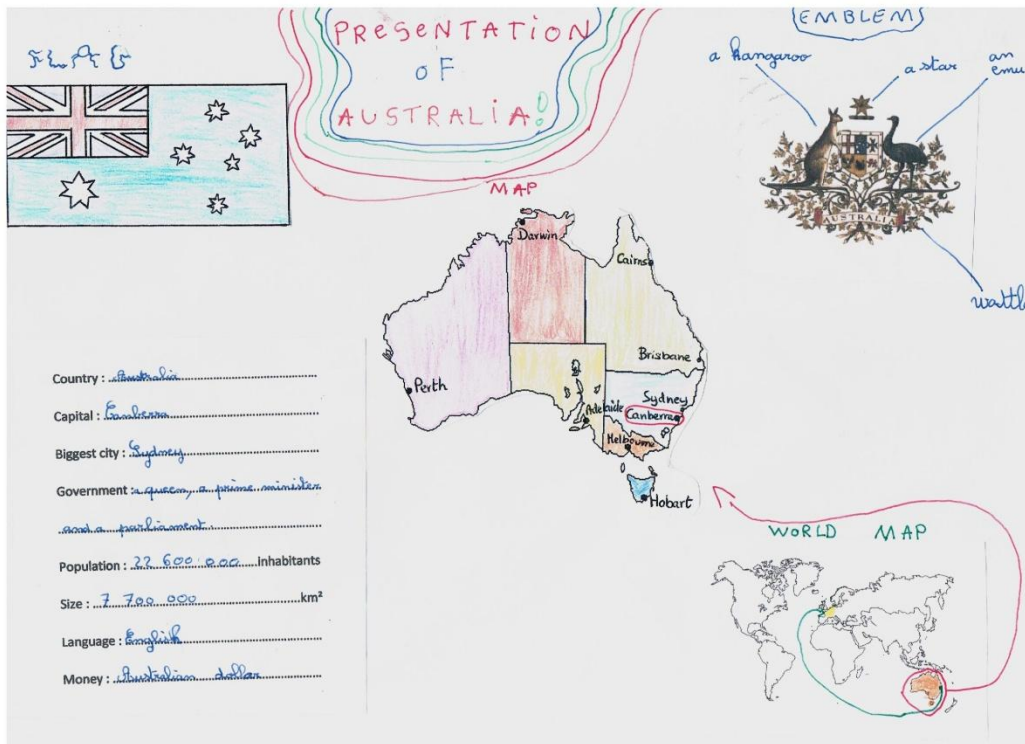 PRESENTATION
OF
AUSTRALIA!
FLAG
EMBLEMS
a kangaroo
a star
an
emu
AUSTRALIA
wattl
MAP
Darwin
Cairns
Brisbane
Perth
Adelaide
Sydney
Canberra
Melbourne
Hobart
Country : Australia
Capital : Canberra
Biggest city : Sydney
Government : a queen, a prime minister
and a parliament.
Population : 22 600 000 Inhabitants
Size : 7 700 000 km²
Language : English
Money : Australian dollar
WORLD MAP